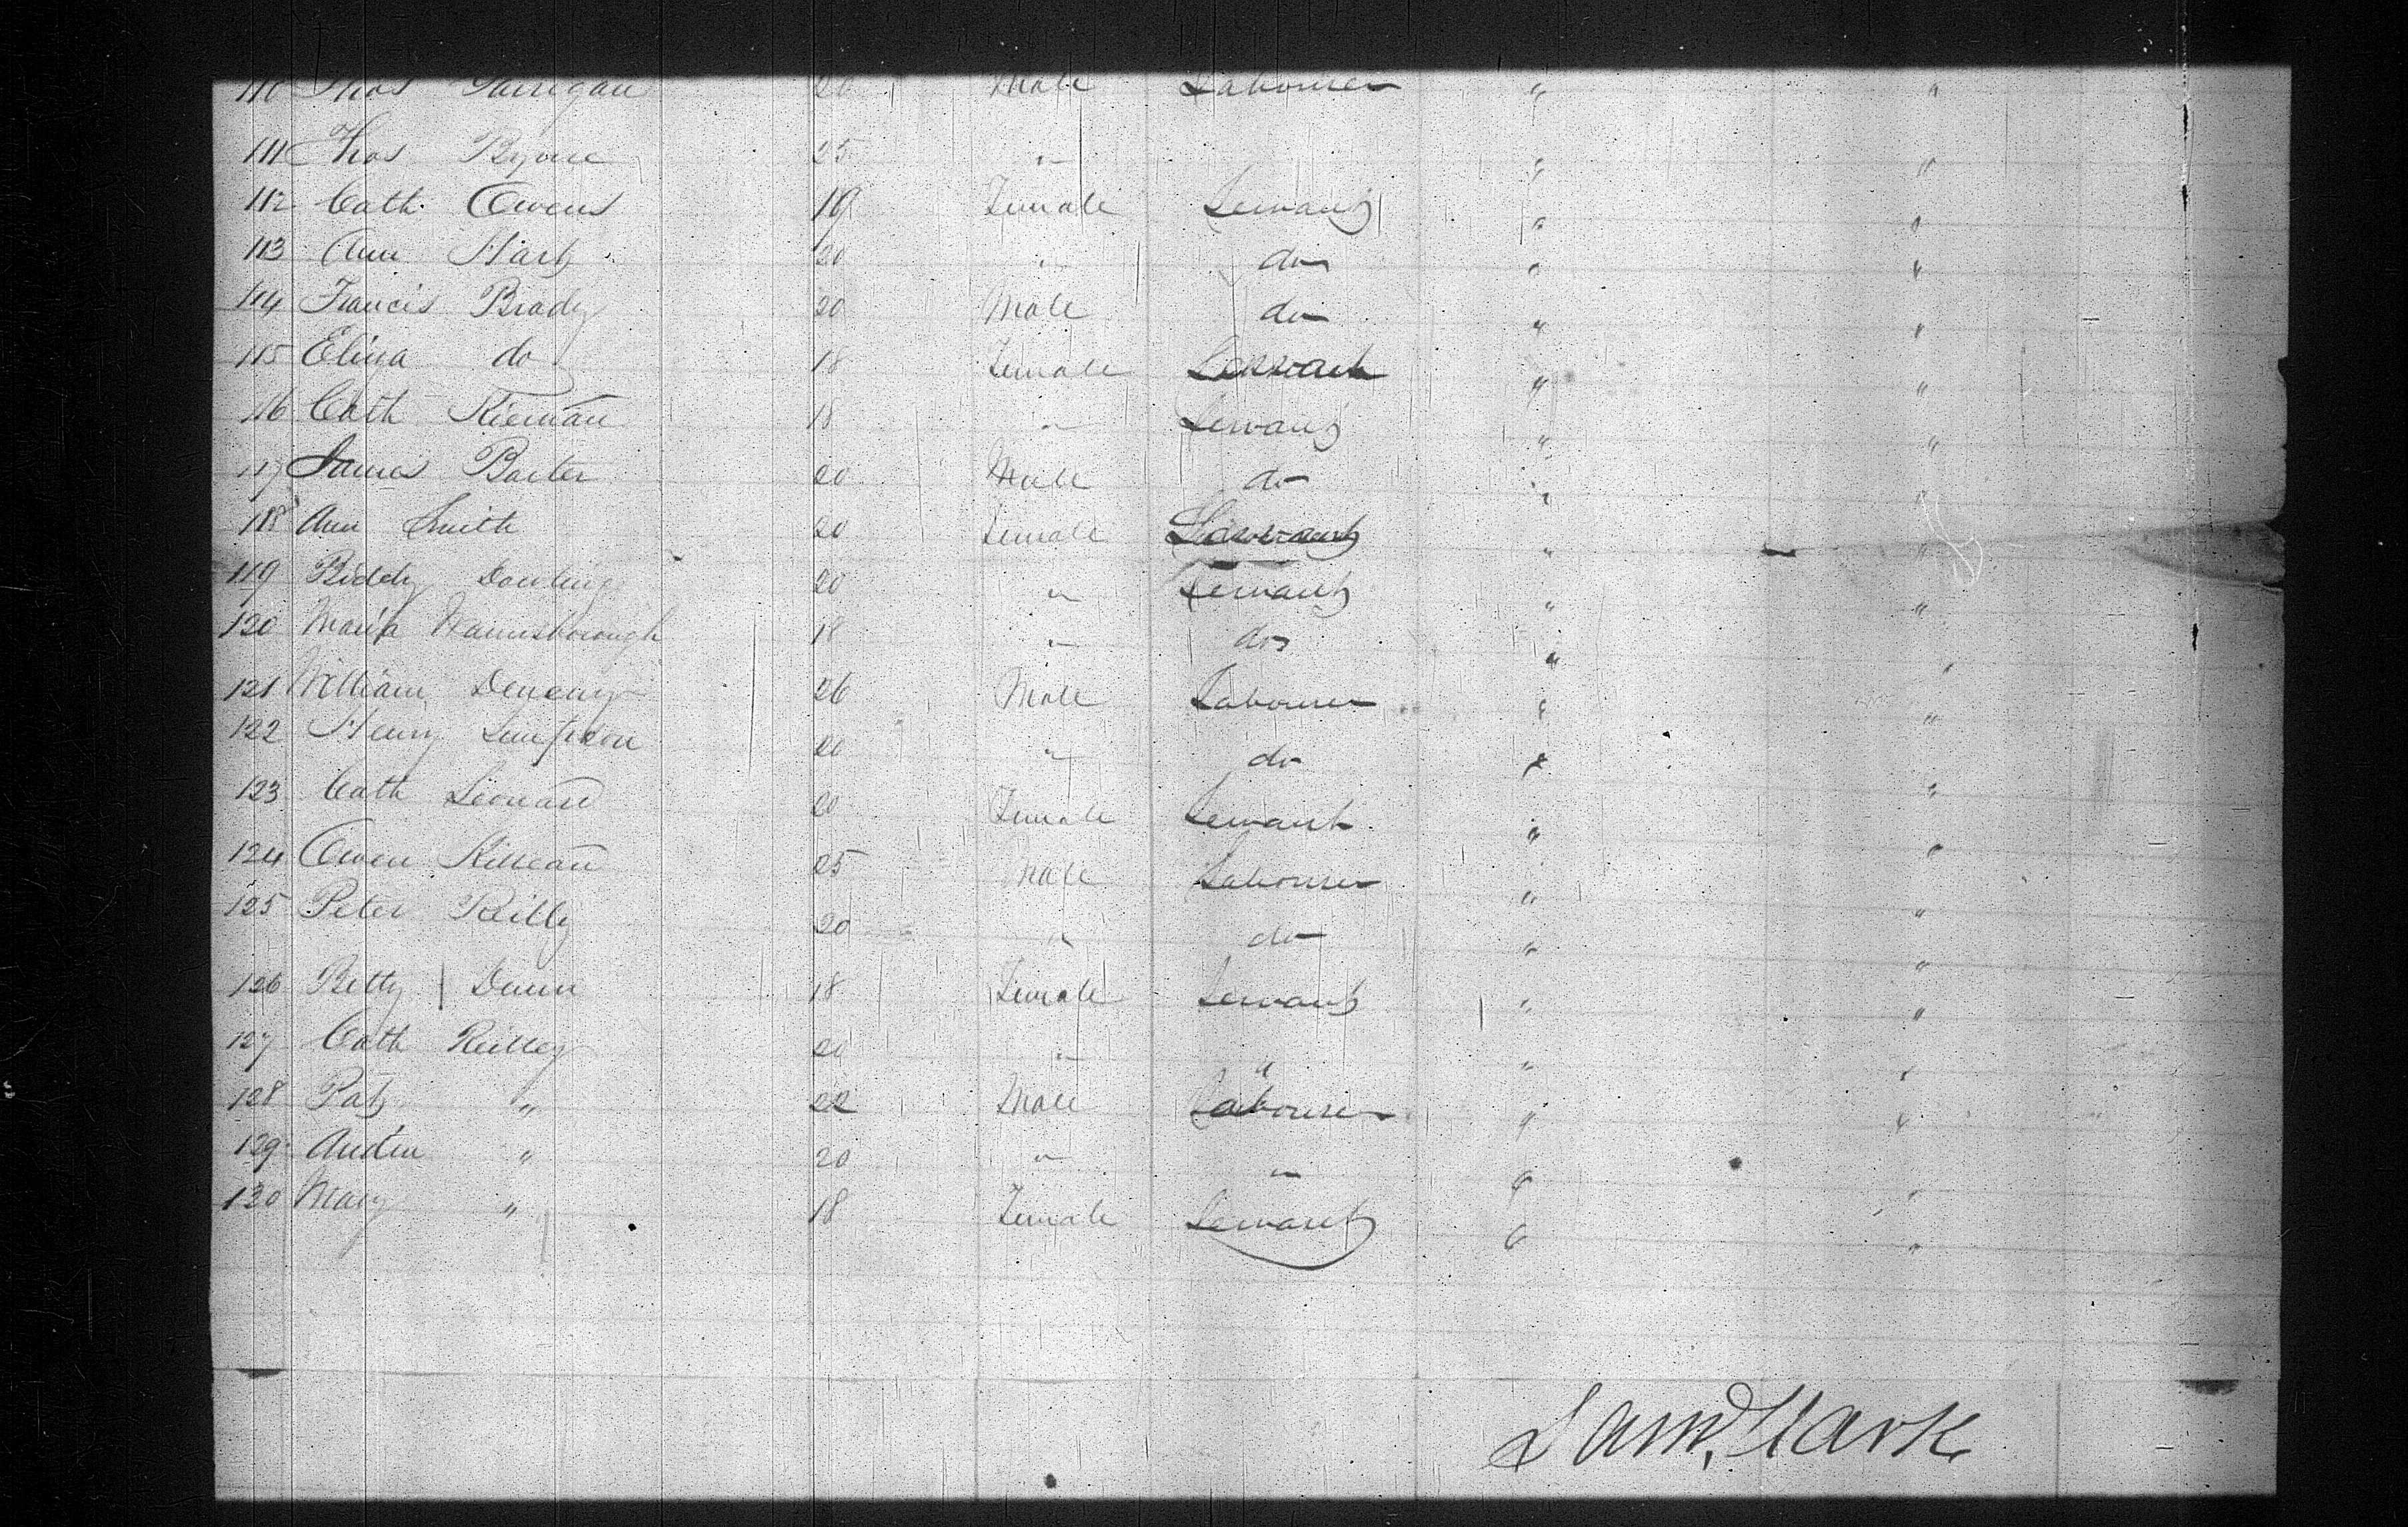 110 Thos 20 Male Labourer " "
111 Thos Byrne 25 " " "
112 Cath Owens 19 Female Servant " "
113 Ann Hart 20 " do " "
114 Francis Brady 20 Male do " "
115 Eliza do 18 Female Servant " "
116 Cath Kiernan 18 " Servant " "
117 James Baxter 20 Male do " "
118 Ann Smith 20 Female Servant " "
119 Biddy Dowling 20 " Servant " "
120 Maria 18 " do " "
121 William 26 Male Labourer " "
122 Henry Simpson 20 " do " "
123 Cath Leonard 20 Female Servant " "
124 Owen 25 Male Labourer " "
125 Peter Reilly 20 " do " "
126 Betty Dunn 18 Female Servant " "
127 Cath Reilley 20 " " " "
128 Pat " 22 Male Labourer " "
129 " 20 " " " "
130 Mary " 18 Female Servant " "
Saml. Clark